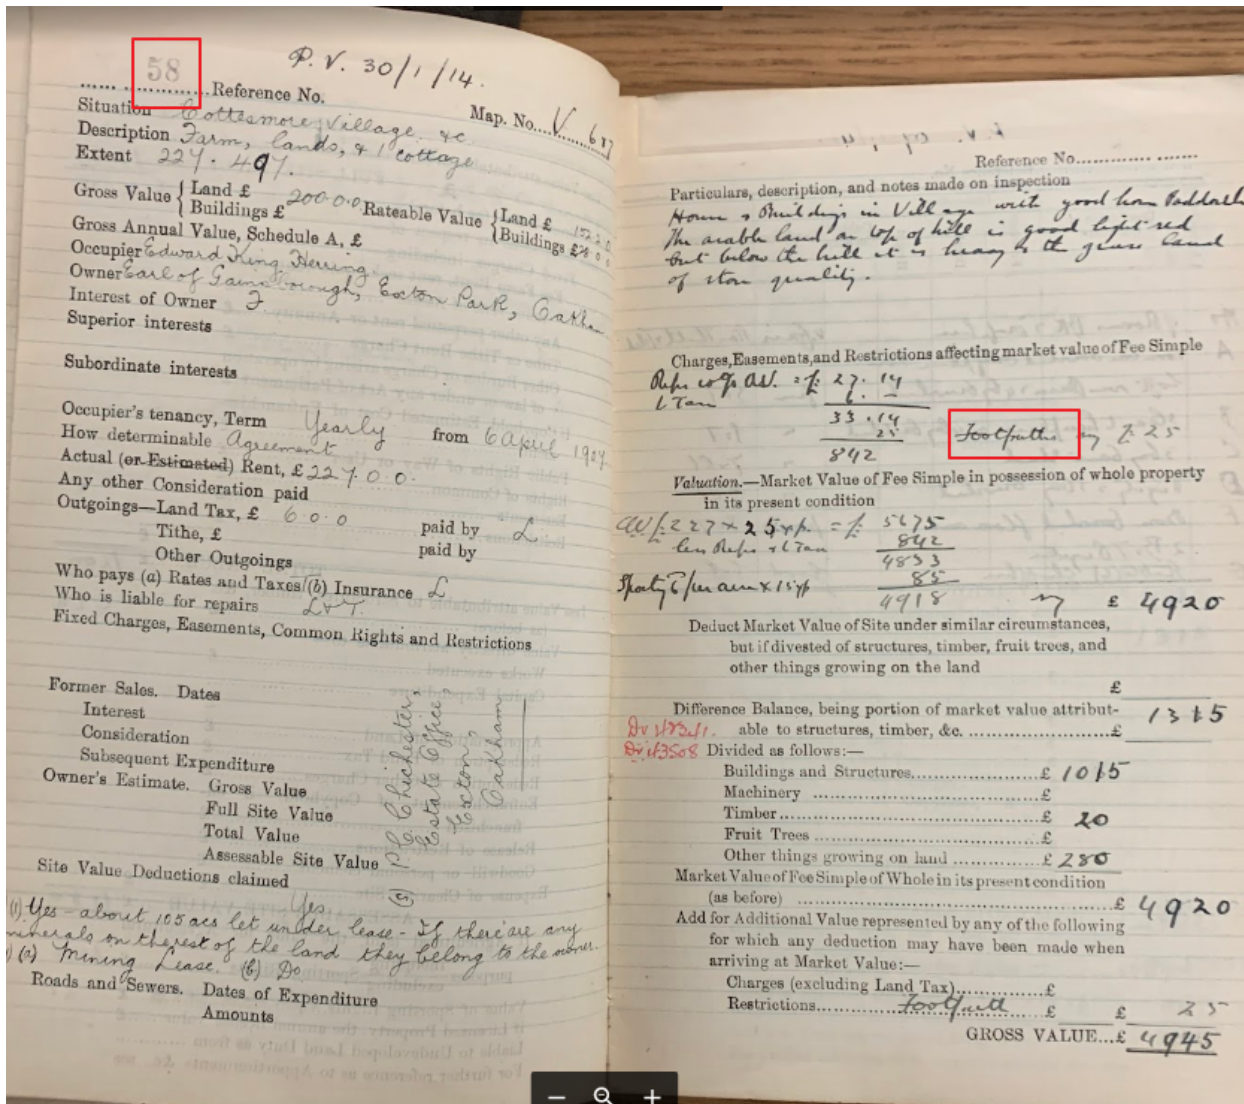 58
P. V. 30/1/14.
Reference No.
Map. No. V. 6 & 7
Situation Cottesmore Village &c
Description Farm, lands, & 1 cottage
Extent 227. 497.
Gross Value { Land £
Buildings £ 200.0.0 Rateable Value { Land £
Buildings £
Gross Annual Value, Schedule A, £
Occupier Edward King Herring
Owner Earl of Gainsborough, Exton Park, Oakham
Interest of Owner F.
Superior interests
Subordinate interests
Occupier's tenancy, Term Yearly from 6 April
How determinable Agreement
Actual (or Estimated) Rent, £ 227.0.0.
Any other Consideration paid
Outgoings—Land Tax, £ 6.0.0 paid by L
Tithe, £ paid by
Other Outgoings
Who pays (a) Rates and Taxes (b) Insurance L
Who is liable for repairs L & T.
Fixed Charges, Easements, Common Rights and Restrictions
Former Sales. Dates
Interest
Consideration
Subsequent Expenditure
Owner's Estimate. Gross Value
Full Site Value
Total Value
Assessable Site Value
(S) P. C. Chichester
Estate Office,
Exton,
Oakham
Site Value Deductions claimed
Yes
(1) Yes - about 105 acs let under lease - If there are any
minerals on the rest of the land they belong to the owner.
(a) Mining Lease. (b) Do
Roads and Sewers. Dates of Expenditure
Amounts
Reference No.
Particulars, description, and notes made on inspection
House & Buildings in Village with good home Paddock
The arable land on top of hill is good light red
but below the hill it is heavy & the grass land
of quality.
Charges, Easements, and Restrictions affecting market value of Fee Simple
Reprs 10% AV. = £ 27. 14
L Tax 6. –
33. 14
25
842
Footpaths say £ 25
Valuation.—Market Value of Fee Simple in possession of whole property
in its present condition
AV £227 x 25 yp = £ 5675
less Reprs & L Tax 842
4833
Sporting per ann x 15 yp 85
4918 say £ 4920
Deduct Market Value of Site under similar circumstances,
but if divested of structures, timber, fruit trees, and
other things growing on the land
£
Difference Balance, being portion of market value attribut-
able to structures, timber, &c. £ 1315
Divided as follows:—
Buildings and Structures £ 1015
Machinery £
Timber £ 20
Fruit Trees £
Other things growing on land £ 280
Market Value of Fee Simple of Whole in its present condition
(as before) £ 4920
Add for Additional Value represented by any of the following
for which any deduction may have been made when
arriving at Market Value:—
Charges (excluding Land Tax) £
Restrictions Footpath £ £ 25
GROSS VALUE...£ 4945